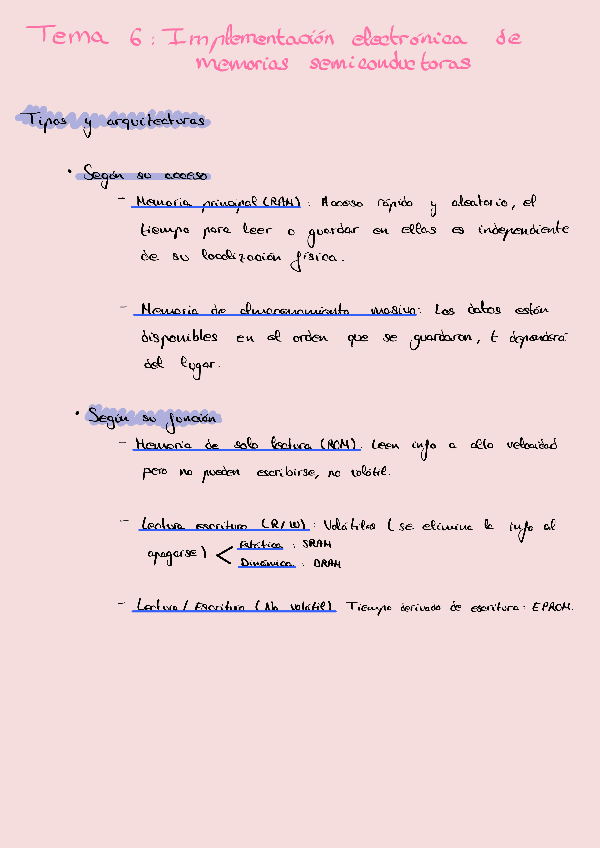 Tema 6: Implementación electrónica de
memorias semiconductoras
Tipos y arquitecturas
• Según su acceso
- Memoria principal (RAM): Acceso rápido y aleatorio, el
tiempo para leer o guardar en ellas es independiente
de su localización física.
- Memoria de almacenamiento masivo: Los datos están
disponibles en el orden que se guardaron, t dependerá
del lugar.
• Según su función
- Memoria de solo lectura (ROM). Leen info a alta velocidad
pero no pueden escribirse, no volátil.
- Lectura escritura (R/W): Volátiles (se elimina la info al
apagarse) < Estática: SRAM
Dinámica: DRAM
- Lectura/Escritura (No volátil) Tiempo derivado de escritura: EPROM.